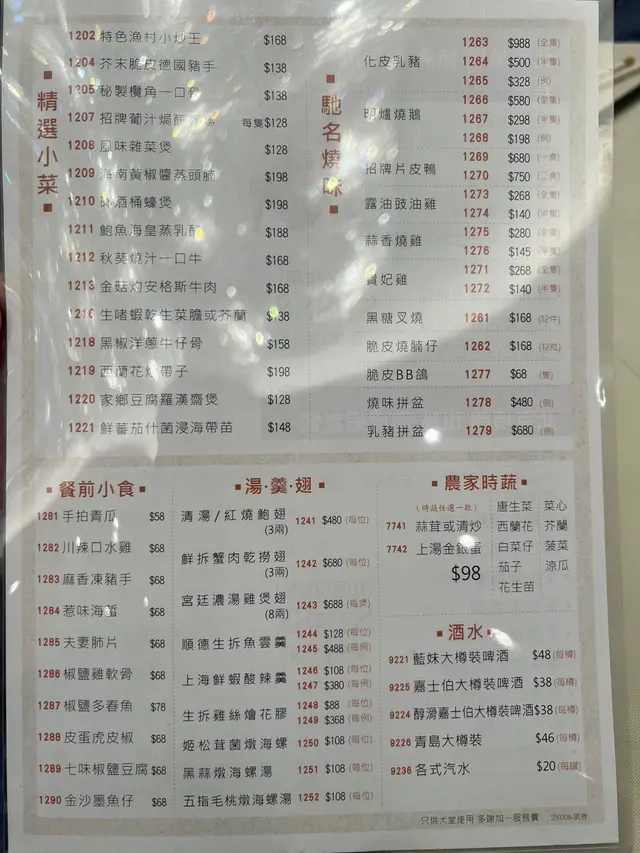 精選小菜
1202 特色漁村小炒王 $168
1204 芥末脆皮德國豬手 $138
1205 秘製欖角一口 $138
1207 招牌葡汁焗 每隻$128
1208 風味雜菜煲 $128
1209 海南黃椒醬蒸頭腩 $198
1210 酒桶蠔煲 $198
1211 鮑魚海皇蒸乳 $188
1212 秋葵燒汁一口牛 $168
1213 金菇灼安格斯牛肉 $168
1216 生啫蝦乾生菜膽或芥蘭 $138
1218 黑椒洋蔥牛仔骨 $158
1219 西蘭花 帶子 $198
1220 家鄉豆腐羅漢齋煲 $128
1221 鮮蕃茄什菌浸海帶苗 $148
馳名燒味
化皮乳豬
1263 $988 (全隻)
1264 $500 (半隻)
1265 $328 (例)
明爐燒鵝
1266 $580 (全隻)
1267 $298 (半隻)
1268 $198 (例)
招牌片皮鴨
1269 $680 (一食)
1270 $750 (二食)
露油豉油雞
1273 $268 (全隻)
1274 $140 (半隻)
蒜香燒雞
1275 $280 (全隻)
1276 $145 (半隻)
貴妃雞
1271 $268 (全隻)
1272 $140 (半隻)
黑糖叉燒 1261 $168 (12件)
脆皮燒腩仔 1262 $168 (12粒)
脆皮BB鴿 1277 $68 (隻)
燒味拼盆 1278 $480 (例)
乳豬拼盆 1279 $680 (例)
餐前小食
1281 手拍青瓜 $58
1282 川辣口水雞 $68
1283 麻香凍豬手 $68
1284 惹味海蜇 $68
1285 夫妻肺片 $68
1286 椒鹽雞軟骨 $68
1287 椒鹽多春魚 $78
1288 皮蛋虎皮椒 $68
1289 七味椒鹽豆腐 $68
1290 金沙墨魚仔 $68
湯·羹·翅
清湯/紅燒鮑翅 1241 $480 (每位)
(3兩)
鮮拆蟹肉乾撈翅 1242 $680 (每位)
(3兩)
宮廷濃湯雞煲翅 1243 $688 (每煲)
(8兩)
順德生拆魚雲羹
1244 $128 (每位)
1245 $488 (每例)
上海鮮蝦酸辣羹
1246 $108 (每位)
1247 $380 (每例)
生拆雞絲燴花膠
1248 $88 (每位)
1249 $368 (每例)
姬松茸菌燉海螺 1250 $108 (每位)
黑蒜燉海螺湯 1251 $108 (每位)
五指毛桃燉海螺湯 1252 $108 (每位)
農家時蔬
(時蔬任選一款)
7741 蒜茸或清炒
7742 上湯金銀蛋
$98
唐生菜 菜心
西蘭花 芥蘭
白菜仔 菠菜
茄子 涼瓜
花生苗
酒水
9221 藍妹大樽裝啤酒 $48(每樽)
9225 嘉士伯大樽裝啤酒 $38(每樽)
9224 醇滑嘉士伯大樽裝啤酒$38(每樽)
9226 青島大樽裝 $46(每樽)
9236 各式汽水 $20(每罐)
只供大堂使用 多謝加一服務費